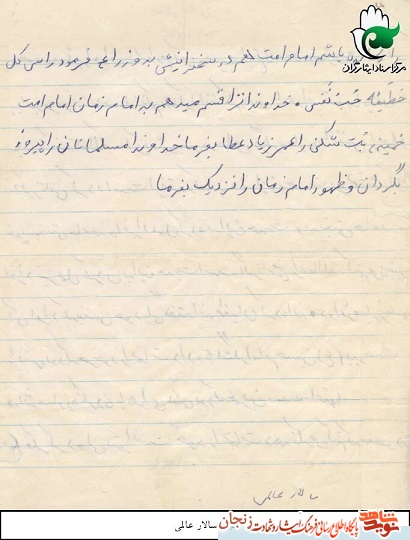 مرکز اسناد ایثارگران
باشم امام امت هم در سخنرانیشی به وزرا هم فرمود راس کل
خطیئه حب نفس . خداوندا ترا قسم میدهم به امام زمان امام امت
خمینی بت شکن را عمر زیاد عطا بفرما خداوندا مسلمانان را پیروز
بگردان و ظهور امام زمان را نزدیک بفرما
سالار عالمی
نوید شاهد
پایگاه اطلاع رسانی فرهنگ ایثار و شهادت زنجان
سالار عالمی